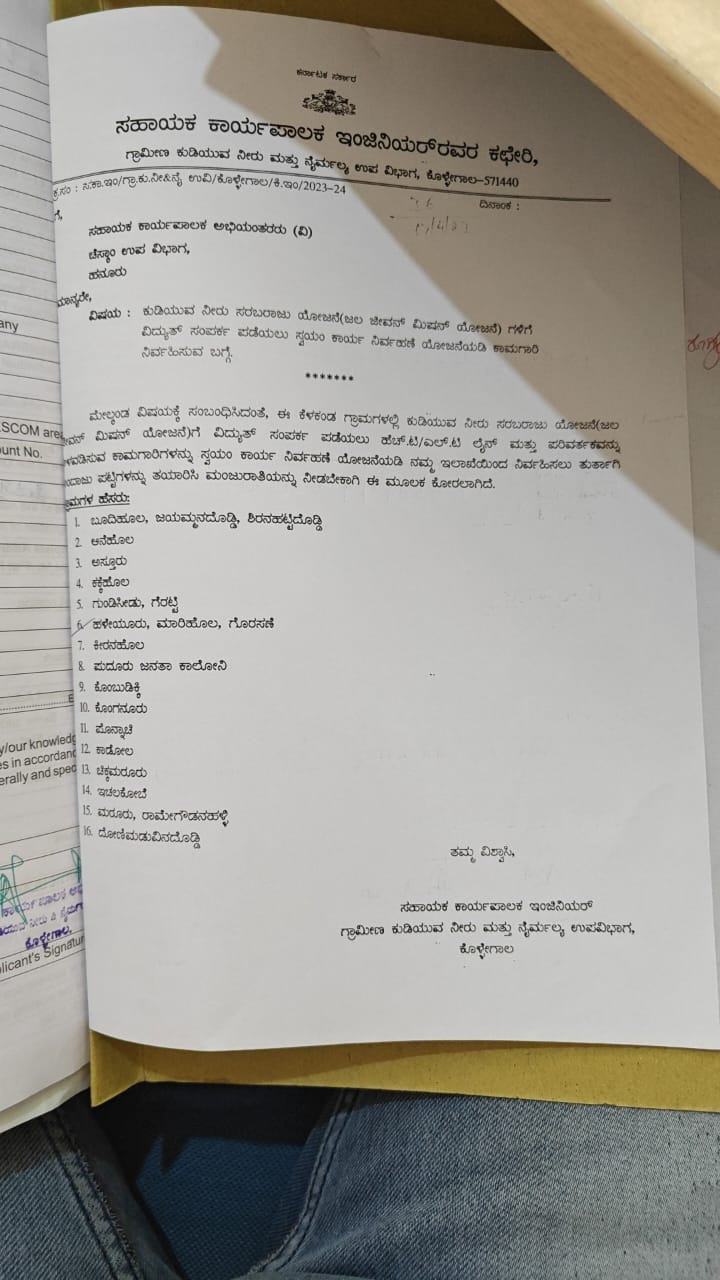 ಕರ್ನಾಟಕ ಸರ್ಕಾರ
ಸಹಾಯಕ ಕಾರ್ಯಪಾಲಕ ಇಂಜಿನಿಯರ್‌ರವರ ಕಛೇರಿ,
ಗ್ರಾಮೀಣ ಕುಡಿಯುವ ನೀರು ಮತ್ತು ನೈರ್ಮಲ್ಯ ಉಪ ವಿಭಾಗ, ಕೊಳ್ಳೇಗಾಲ-571440
ಕ್ರ.ಸಂ : ಸ.ಕಾ.ಇಂ/ಗ್ರಾ.ಕು.ನೀ&ನೈ ಉವಿ/ಕೊಳ್ಳೇಗಾಲ/ಕಿ.ಇಂ/2023-24
ದಿನಾಂಕ :
ಗೆ,
ಸಹಾಯಕ ಕಾರ್ಯಪಾಲಕ ಅಭಿಯಂತರರು (ವಿ)
ಚೆಸ್ಕಾಂ ಉಪ ವಿಭಾಗ,
ಹನೂರು
ಮಾನ್ಯರೇ,
ವಿಷಯ : ಕುಡಿಯುವ ನೀರು ಸರಬರಾಜು ಯೋಜನೆ(ಜಲ ಜೀವನ್ ಮಿಷನ್ ಯೋಜನೆ) ಗಳಿಗೆ
ವಿದ್ಯುತ್ ಸಂಪರ್ಕ ಪಡೆಯಲು ಸ್ವಯಂ ಕಾರ್ಯ ನಿರ್ವಹಣೆ ಯೋಜನೆಯಡಿ ಕಾಮಗಾರಿ
ನಿರ್ವಹಿಸುವ ಬಗ್ಗೆ.
*******
ಮೇಲ್ಕಂಡ ವಿಷಯಕ್ಕೆ ಸಂಬಂಧಿಸಿದಂತೆ, ಈ ಕೆಳಕಂಡ ಗ್ರಾಮಗಳಲ್ಲಿ ಕುಡಿಯುವ ನೀರು ಸರಬರಾಜು ಯೋಜನೆ(ಜಲ
ಮಿಷನ್ ಯೋಜನೆ)ಗೆ ವಿದ್ಯುತ್ ಸಂಪರ್ಕ ಪಡೆಯಲು ಹೆಚ್.ಟಿ/ಎಲ್.ಟಿ ಲೈನ್ ಮತ್ತು ಪರಿವರ್ತಕವನ್ನು
ಕಾಮಗಾರಿಗಳನ್ನು ಸ್ವಯಂ ಕಾರ್ಯ ನಿರ್ವಹಣೆ ಯೋಜನೆಯಡಿ ನಮ್ಮ ಇಲಾಖೆಯಿಂದ ನಿರ್ವಹಿಸಲು ತುರ್ತಾಗಿ
ಪಟ್ಟಿಗಳನ್ನು ತಯಾರಿಸಿ ಮಂಜುರಾತಿಯನ್ನು ನೀಡಬೇಕಾಗಿ ಈ ಮೂಲಕ ಕೋರಲಾಗಿದೆ.
ಹೆಸರು:
1. ಬೂದಿಹೊಲ, ಜಯಮ್ಮನದೊಡ್ಡಿ, ಶಿರನಹಟ್ಟಿದೊಡ್ಡಿ
2. ಆನೆಹೊಲ
3. ಅಸ್ತೂರು
4. ಕಕ್ಕೆಹೊಲ
5. ಗುಂಡಿಸೀಡು, ಗೆರಟ್ಟಿ
6. ಹಳೇಯೂರು, ಮಾರಿಹೊಲ, ಗೊರಸಣೆ
7. ಕೀರನಹೊಲ
8. ಪುದೂರು ಜನತಾ ಕಾಲೋನಿ
9. ಕೊಂಬುಡಿಕ್ಕಿ
10. ಕೊಂಗನೂರು
11. ಪೊನ್ನಾಚಿ
12. ಕಾಡೋಲ
13. ಚಿಕ್ಕಮರೂರು
14. ಇಚಲಕೋಬೆ
15. ಮರೂರು, ರಾಮೇಗೌಡನಹಳ್ಳಿ
16. ದೋಣಿಮಡುವಿನದೊಡ್ಡಿ
ತಮ್ಮ ವಿಶ್ವಾಸಿ,
ಸಹಾಯಕ ಕಾರ್ಯಪಾಲಕ ಇಂಜಿನಿಯರ್
ಗ್ರಾಮೀಣ ಕುಡಿಯುವ ನೀರು ಮತ್ತು ನೈರ್ಮಲ್ಯ ಉಪವಿಭಾಗ,
ಕೊಳ್ಳೇಗಾಲ
any
SCOM area
unt No.
y/our knowledg
es in accordanc
erally and spec
ಕೊಳ್ಳೇಗಾಲ.
licant's Signatur